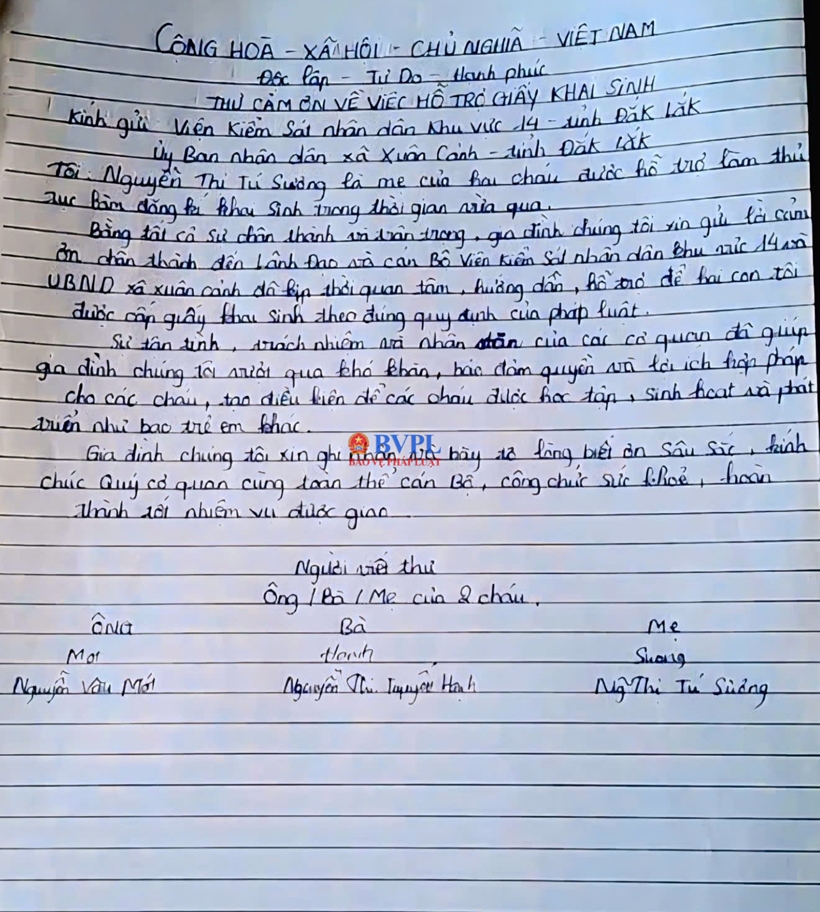 CỘNG HOÀ - XÃ HỘI - CHỦ NGHĨA - VIỆT NAM
Độc lập - Tự Do - Hạnh phúc
THƯ CẢM ƠN VỀ VIỆC HỖ TRỢ GIẤY KHAI SINH
Kính gửi Viện Kiểm Sát nhân dân Khu vực 14 - tỉnh Đắk Lắk
Ủy Ban nhân dân xã Xuân Cảnh - tỉnh Đắk Lắk
Tôi: Nguyễn Thị Tú Sương là mẹ của hai cháu được hỗ trợ làm thủ
tục làm đăng kí khai sinh trong thời gian vừa qua.
Bằng tất cả sự chân thành và trân trọng, gia đình chúng tôi xin gửi lời cảm
ơn chân thành đến Lãnh Đạo và cán Bộ Viện Kiểm Sát nhân dân khu vực 14 và
UBND xã xuân cảnh đã kịp thời quan tâm, hướng dẫn, hỗ trợ để hai con tôi
được cấp giấy khai sinh theo đúng quy định của pháp luật.
Sự tận tình, trách nhiệm và nhân của các cơ quan đã giúp
gia đình chúng tôi vượt qua khó khăn, bảo đảm quyền và lợi ích hợp pháp
cho các cháu, tạo điều kiện để các cháu được học tập, sinh hoạt và phát
triển như bao trẻ em khác.
Gia đình chúng tôi xin ghi nhận và bày tỏ lòng biết ơn sâu sắc, kính
BVPL
BẢO VỆ PHÁP LUẬT
chúc Quý cơ quan cùng toàn thể cán Bộ, công chức sức khoẻ, hoàn
thành tốt nhiệm vụ được giao.
Người viết thư
Ông / Bà / Mẹ của 2 cháu.
Ông Bà Mẹ
Mới Hạnh Sương
Nguyễn Văn Mới Nguyễn Thị Tuyết Hạnh Ng Thị Tú Sương